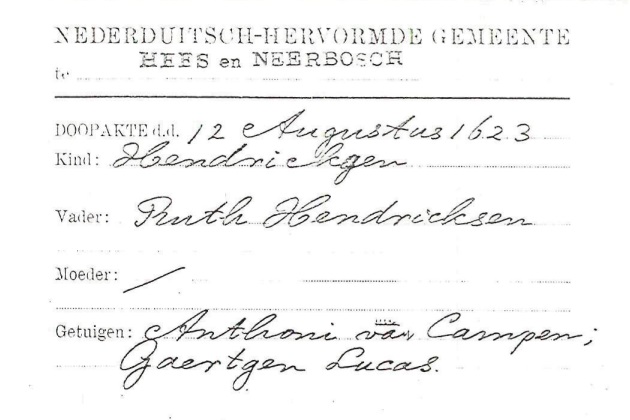 NEDERDUITSCH-HERVORMDE GEMEENTE
HEES en NEERBOSCH
te
DOOPAKTE d.d. 12 Augustus 1623
Kind: Hendrickgen
Vader: Ruth Hendricksen
Moeder: /
Getuigen: Anthoni van Campen;
Gaertgen Lucas.